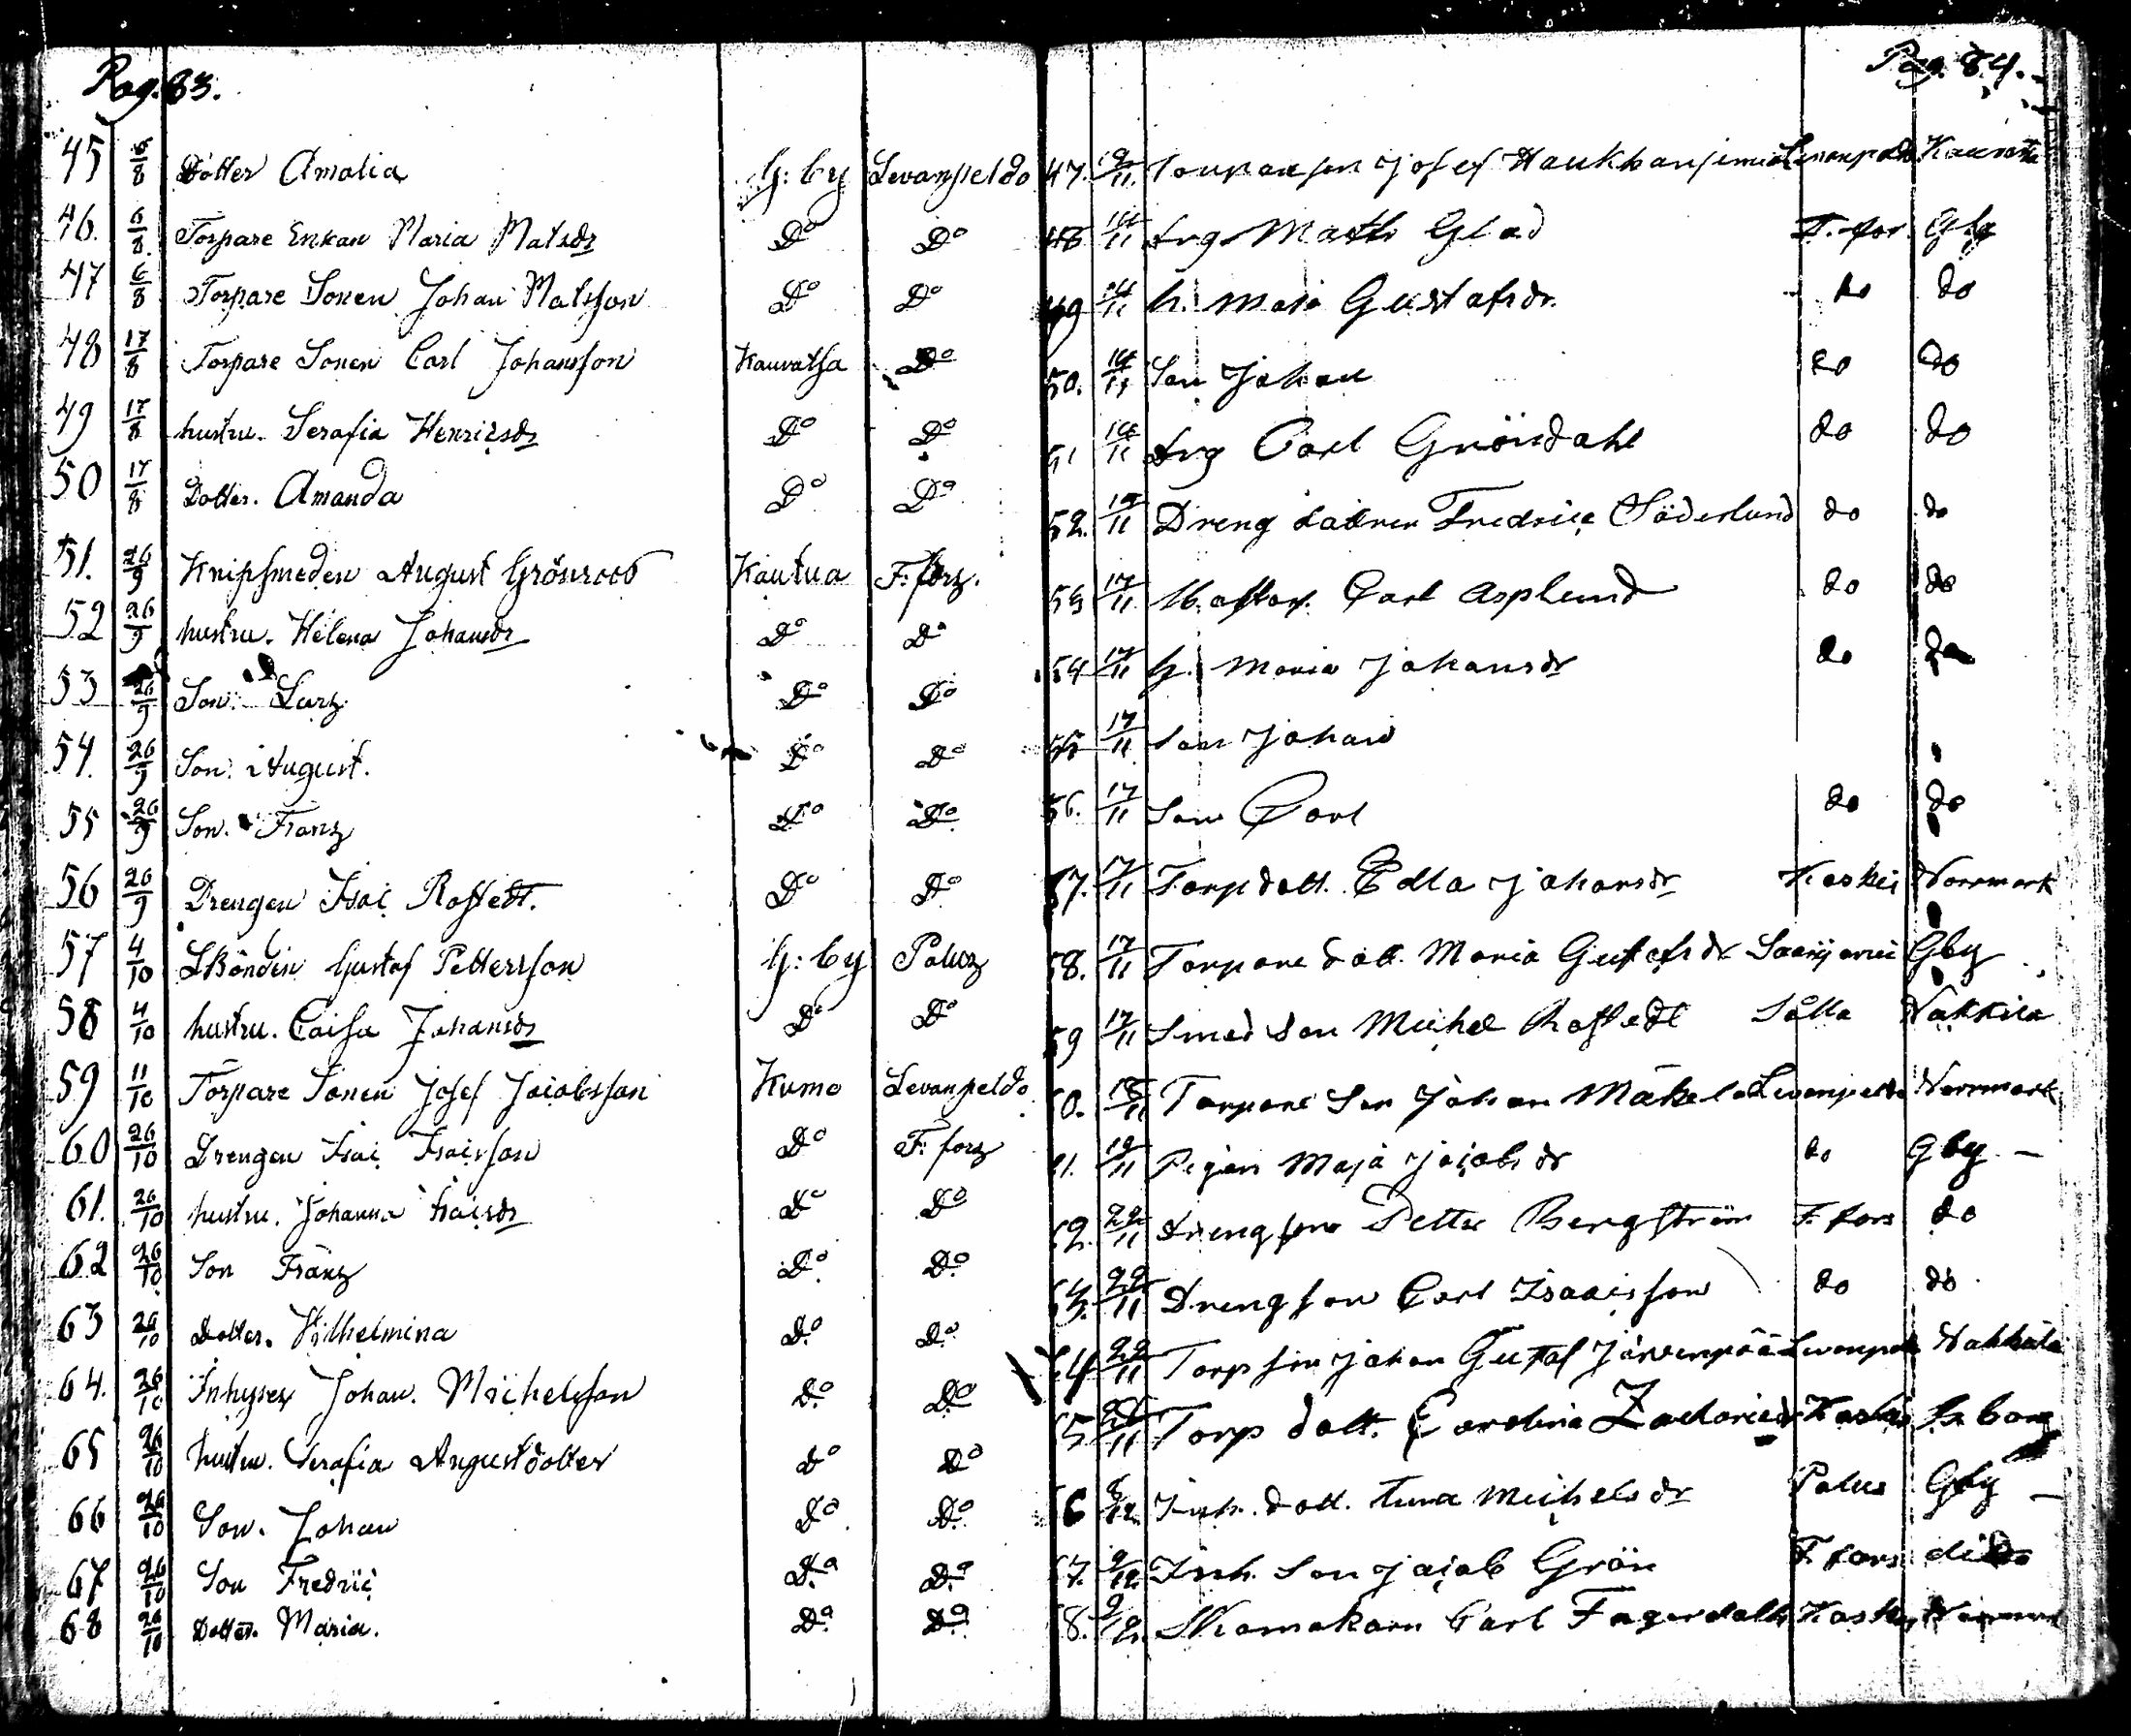 Pag. 83.
45 6/8 Dotter Amalia G: by Levanpeldo
46. 6/8 Torpare Enkan Maria Matsdr Do Do
47 6/8 Torpare Sonen Johan Matsson Do Do
48 17/8 Torpare Sonen Carl Johansson Kauvatsa Do
49 17/8 hustru. Serafia Henricsdr Do Do
50 17/8 Dotter. Amanda Do Do
51. 26/9 Knipsmeden August Grönroos Kautua F: forz.
52 26/9 hustru. Helena Johansdr Do Do
53 26/9 Son. Larz Do Do
54. 26/9 Son. August. Do Do
55 26/9 Son. Franz Do Do
56 26/9 Drengen Isac Rostedt. Do Do
57 4/10 LBonden Gustaf Pettersson G: by Palusz
58 4/10 hustru. Caisa Johansdr Do Do
59 11/10 Torpare Sonen Josef Jacobsson Kumo Levanpeldo
60 26/10 Drengen Isac Isacsson Do F: forz
61. 26/10 hustru. Johanna Isacsdr Do Do
62 26/10 Son Franz Do Do
63 26/10 Dotter. Wilhelmina Do Do
64. 26/10 Inhyses Johan. Michelsson Do Do
65 26/10 hustru. Serafia Augustdotter Do Do
66 26/10 Son. Johan Do Do
67 26/10 Son Fredric Do Do
68 26/10 Dotter. Maria. Do Do
Pag. 84.
47. /11 Torparesson Josef Haukkansuni
48 14/11 drg Matts Glad F. for. Gby
49 14/11 h. Maja Gustafsdr. do do
50. 14/11 Son Johan do do
51 14/11 drg Carl Gröndahl do do
52. /11 Dreng Fredric Söderlund do do
53 17/11 Carl Asplund do do
54 17/11 h. Maria Johansdr do do
55 17/11 Son Johan
56. 17/11 Son Carl do do
57. 17/11 Torp dott. Edla Johansdr Kaskei Norrmark
58. 17/11 Torpare dott. Maria Gustafsdr Gby
59 17/11 Smed son Michel Rostedt Sålla Nakkila
60. 18/11 Torpare Son Johan Mäkelä Levanpeldo Norrmark
61. 19/11 Pigan Maja Jacobsdr do Gby
62. 22/11 dreng son Petter Bergström F. fors do
63. 22/11 Dreng son Carl Isaacsson do do
64 22/11 Torp son Johan Gustaf Järvenpää Levanpeldo Nakkila
65 /11 Torp dott. Carolina Zachariedr Kaskei
66 /12 Inh. dott. Tuna Michelsdr Palus Gby
67. 9/12 Inh. Son Jacob Grön F. fors dito
68. 9/12. Skomakarn Carl Fagerdahl Kaskei